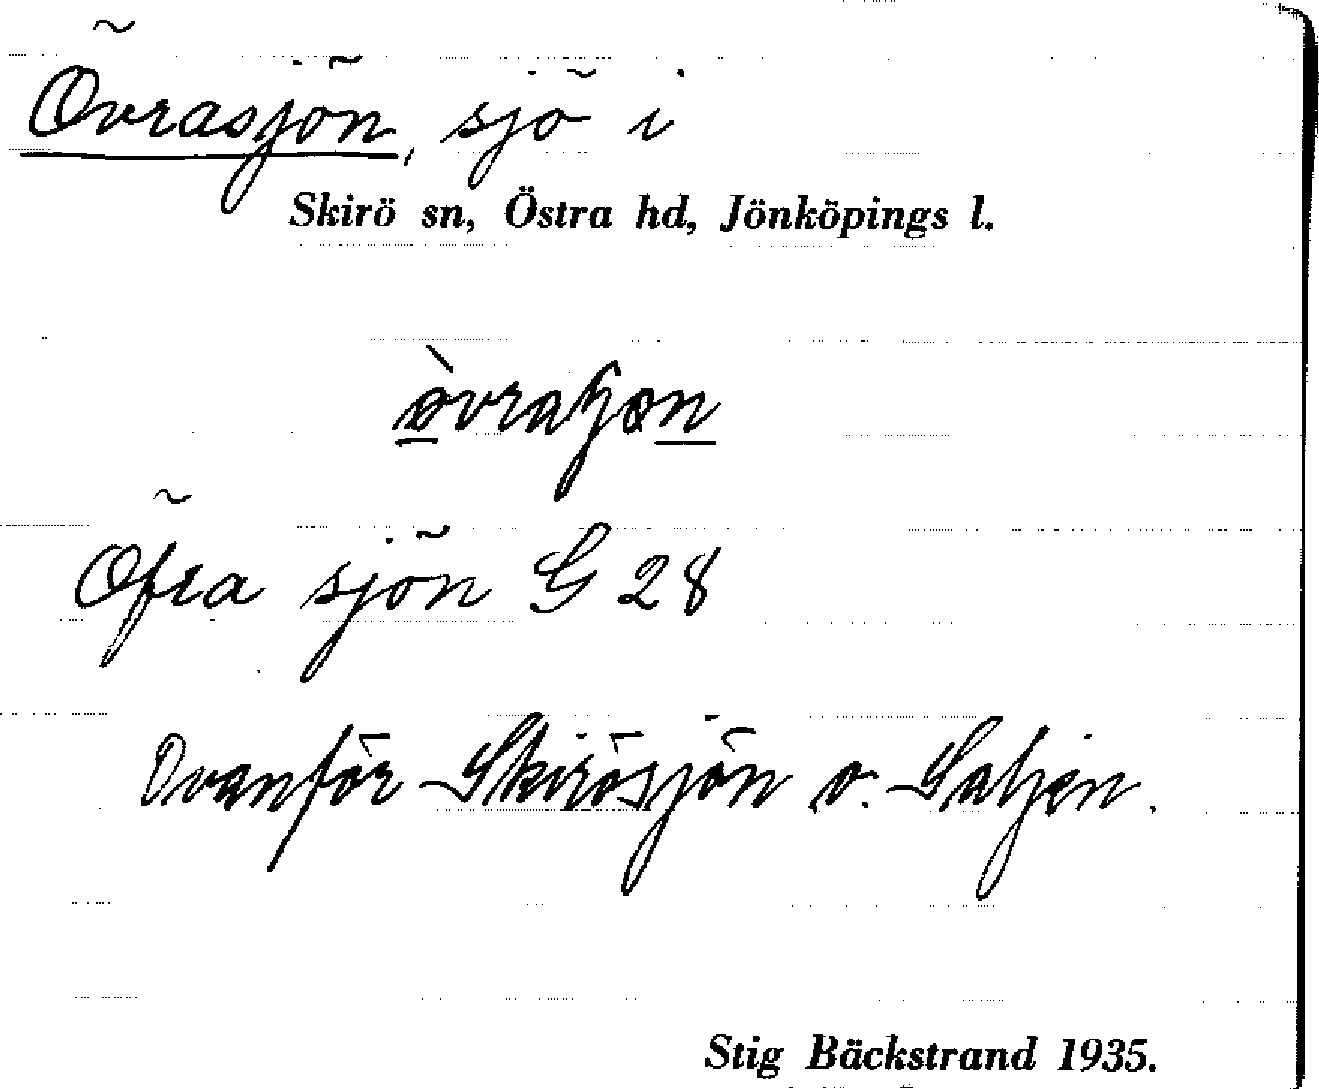 Övrasjön, sjö i
Skirö sn, Östra hd, Jönköpings l.
Öfra sjön G 28
Ovanför Skirösjön o.
Stig Bäckstrand 1935.